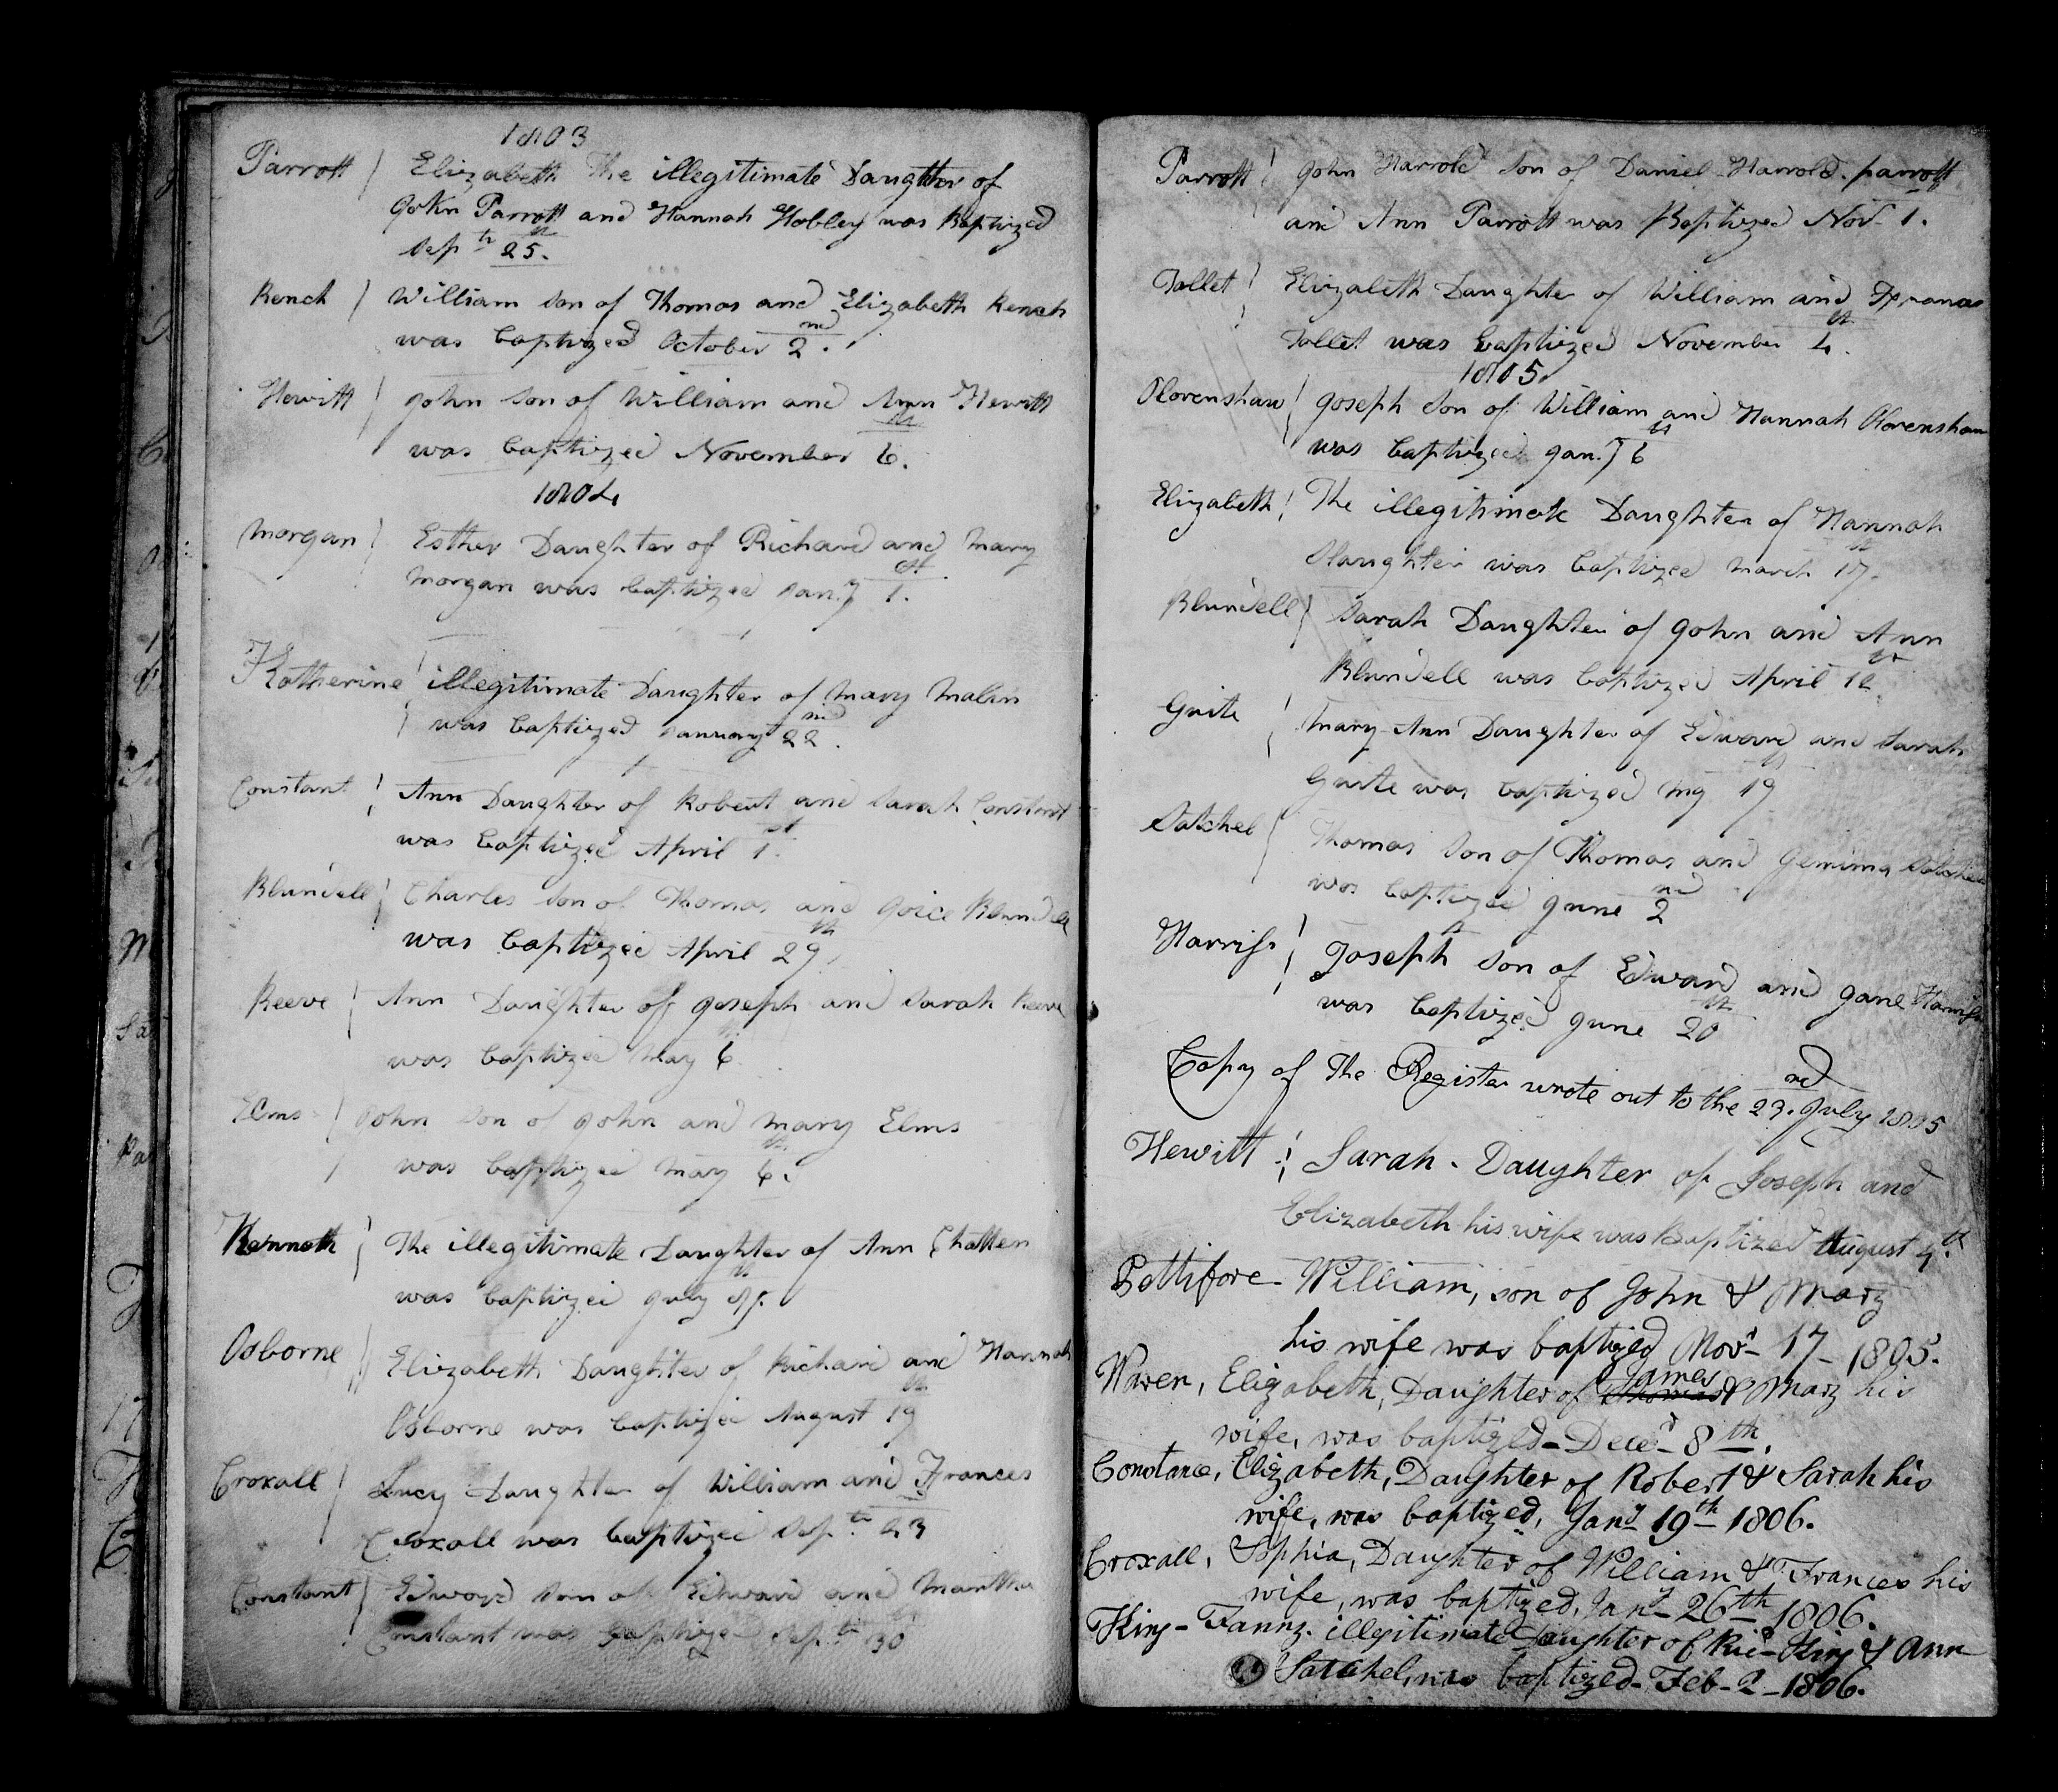 1803
Parrott Elizabeth The illegitimate Daughter of
John Parrott and Hannah Hobley was Baptized
Sepr 25th.
Rench William Son of Thomas and Elizabeth Rench
was baptized October 2nd.
Hewitt John Son of William and Ann Hewitt
was baptized November 6th.
1804
Morgan Esther Daughter of Richard and Mary
Morgan was baptized Jany 1st.
Katherine illegitimate Daughter of Mary Malin
was baptized January 22nd.
Constant Ann Daughter of Robert and Sarah Constant
was baptized April 1st.
Blundell Charles Son of Thomas and Joice Blundell
was baptized April 29th
Reeve Ann Daughter of Joseph and Sarah Reeve
was baptized May 6
Elms John Son of John and Mary Elms
was baptized May 6th.
Hannah The illegitimate Daughter of Ann Chatten
was baptized July
Osborne Elizabeth Daughter of Richard and Hannah
Osborne was baptized August 19th
Croxall Lucy Daughter of William and Frances
Croxall was baptized Sepr 23
Constant Edward Son of Edward and Martha
Constant was baptized Sepr 30
Parrott John Harrold Son of Daniel Harrold parrott
and Ann Parrott was Baptized Nov 1.
Tollet Elizabeth Daughter of William and Frances
Tollet was baptized November 4th.
1805
Olorenshaw Joseph Son of William and Hannah Olorenshaw
was baptized Jany 6th
Elizabeth The illegitimate Daughter of Hannah
Slaughter was baptized March 17th.
Blundell Sarah Daughter of John and Ann
Blundell was baptized April
Guite Mary Ann Daughter of Edward and Sarah
Guite was baptized My 19
Satchel Thomas Son of Thomas and Gemima Satchel
was baptized June 2nd
Harriss Joseph Son of Edward and Jane Harriss
was baptized June 20th
Copy of the Register wrote out to the 23rd July 1805
Hewitt Sarah - Daughter of Joseph and
Elizabeth his wife was Baptized August 4th
Pettifore - William, son of John & Mary
his wife was baptized Novr - 17 - 1805.
Waren, Elizabeth, Daughter of James & Mary his
wife, was baptized - Decr - 8th.
Constance, Elizabeth, Daughter of Robert & Sarah his
wife, was baptized, Jany 19th 1806.
Croxall, Sophia, Daughter of William & Frances his
wife, was baptized, Jany 26th 1806.
King - Fanny. illegitimate Daughter of Ricd - King & Ann
Satchel, was baptized - Feb - 2 - 1806.